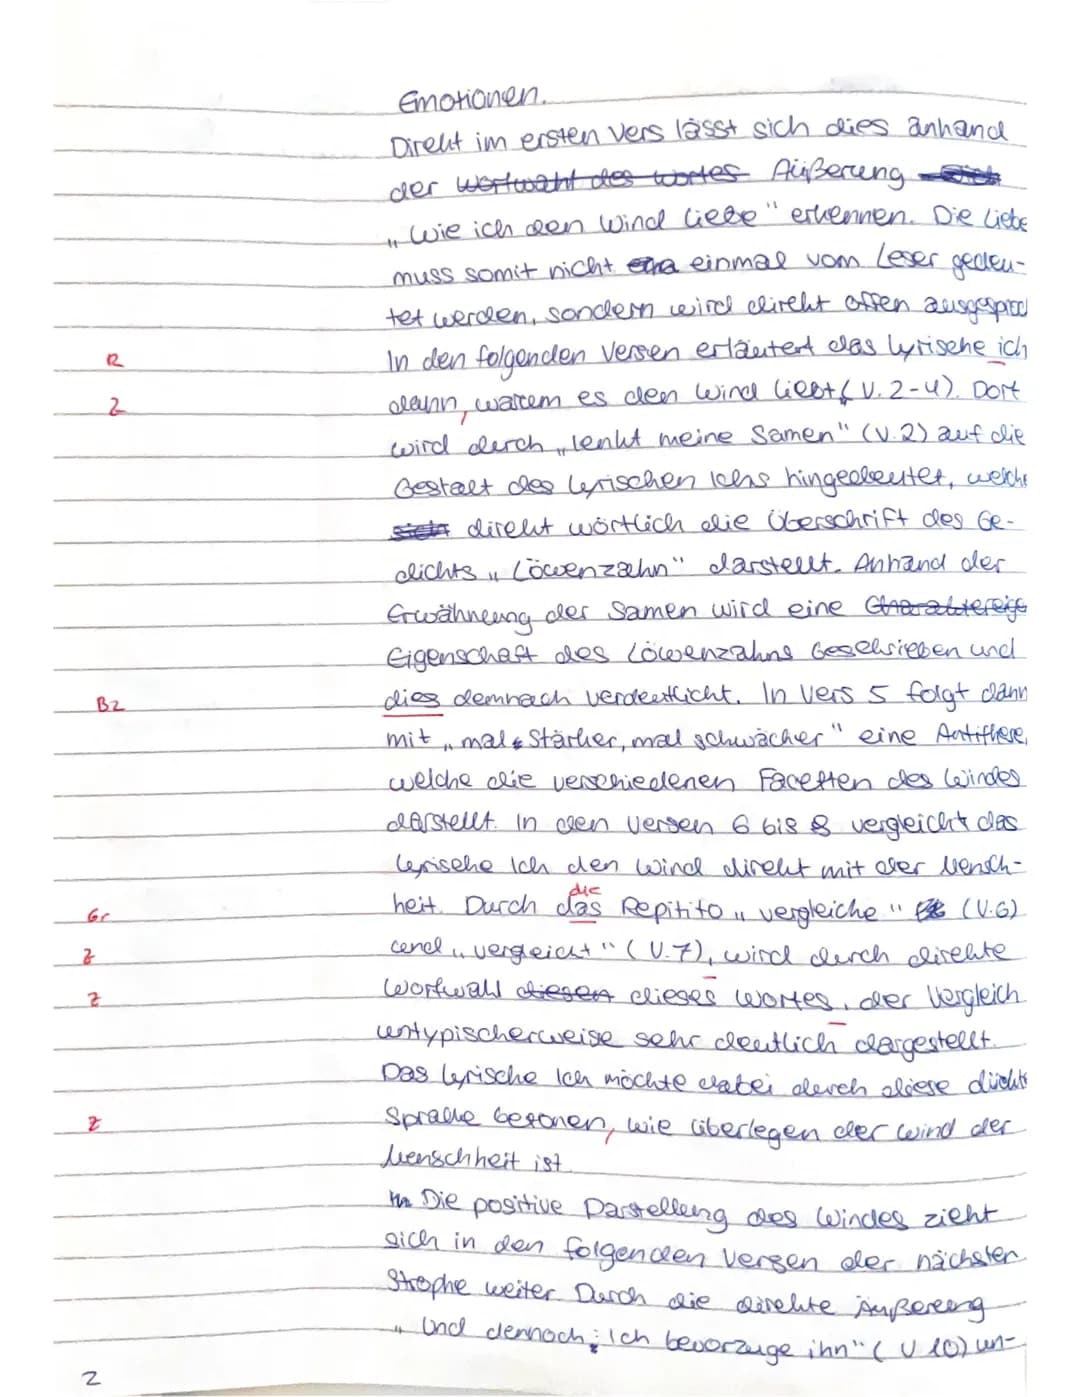 Emotionen.
Direkt im ersten Vers lässt sich dies anhand
der wortwahl des wortes Äußerung sich
„Wie ich den Wind liebe" erkennen. Die Liebe
muss somit nicht einmal vom Leser gedeu-
tet werden, sondern wird direkt offen ausgesproc
R In den folgenden Versen erläutert das lyrische ich
Z dann, warum es den Wind liebt (V. 2-4). Dort
wird durch „lenkt meine Samen" (V.2) auf die
Gestalt des lyrischen Ichs hingedeutet, welche
sich direkt wörtlich die Überschrift des Ge-
dichts „Löwenzahn" darstellt. Anhand der
Erwähnung der Samen wird eine Charaktereige
Eigenschaft des Löwenzahns beschrieben und
Bz dies demnach verdeutlicht. In Vers 5 folgt dann
mit „mal Stärker, mal schwächer" eine Antithese,
welche die verschiedenen Facetten des Windes
darstellt. In den Versen 6 bis 8 vergleicht das
lyrische Ich den Wind direkt mit der Mensch-
die
Gr heit. Durch das Repitito „vergleiche" (V.6)
Z und „vergleicht" (V.7), wird durch direkte
Z Wortwahl diesen dieses Wortes, der Vergleich
untypischerweise sehr deutlich dargestellt.
Das lyrische Ich möchte dabei durch diese
Z Sprache betonen, wie überlegen der Wind der
Menschheit ist.
Die positive Darstellung des Windes zieht
sich in den folgenden Versen der nächsten
Strophe weiter. Durch die direkte Äußerung
„Und dennoch: Ich bevorzuge ihn" (V 10) un-
2